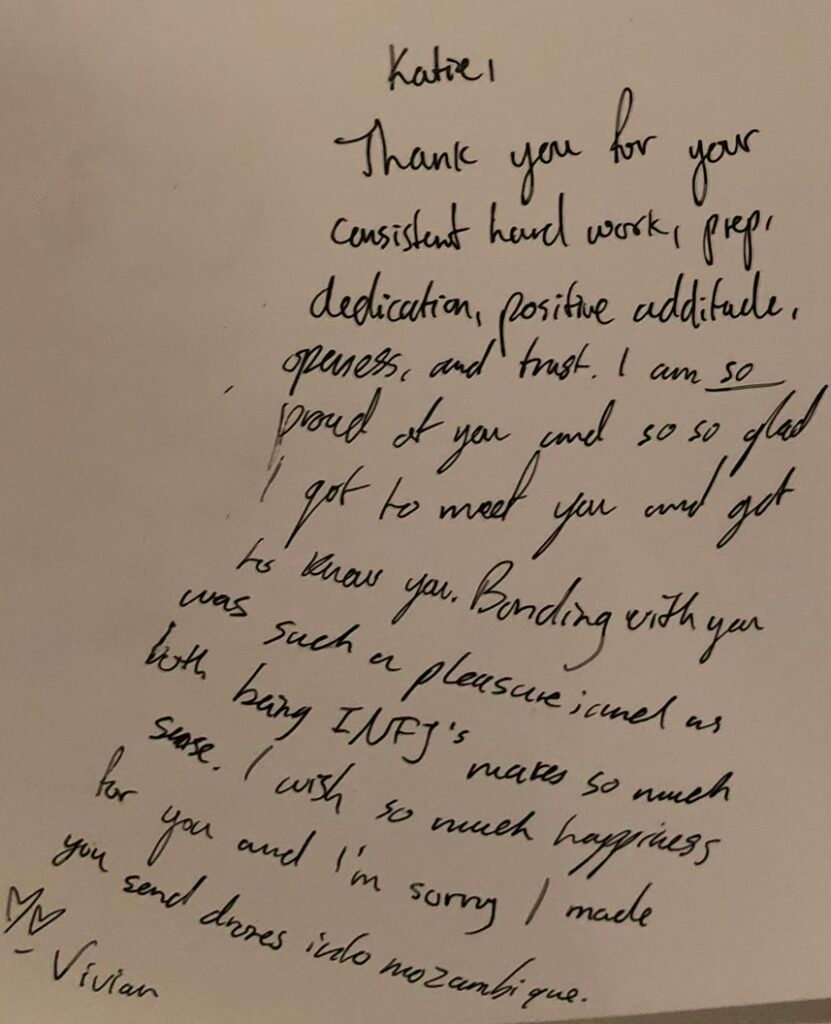 Katie,
Thank you for your
consistent hard work, prep,
dedication, positive additude,
openess, and trust. I am so
proud of you and so so glad
I got to meet you and get
to know you. Bonding with you
was such a pleasure; and us
both being INFJ's makes so much
sense. I wish so much happiness
for you and I'm sorry I made
you send drones into mozambique.
- Vivian